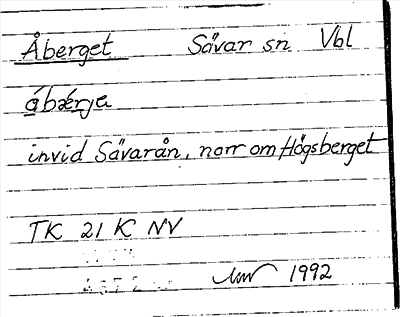 Åberget Sävar sn Vbl
ábǽrje
invid Sävarån, norr om Högsberget
TK 21 K NV
1992